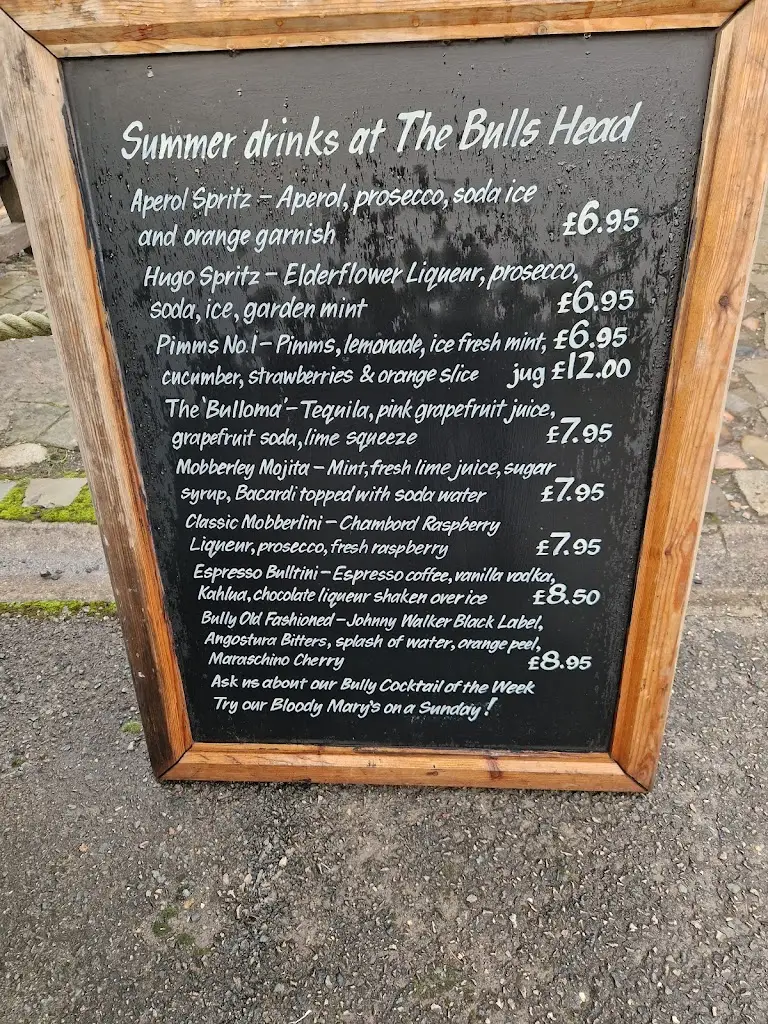 Summer drinks at The Bulls Head
Aperol Spritz – Aperol, prosecco, soda ice
and orange garnish £6.95
Hugo Spritz – Elderflower Liqueur, prosecco,
soda, ice, garden mint £6.95
Pimms No.1 – Pimms, lemonade, ice fresh mint, £6.95
cucumber, strawberries & orange slice jug £12.00
The 'Bulloma' – Tequila, pink grapefruit juice,
grapefruit soda, lime squeeze £7.95
Mobberley Mojita – Mint, fresh lime juice, sugar
syrup, Bacardi topped with soda water £7.95
Classic Mobberlini – Chambord Raspberry
Liqueur, prosecco, fresh raspberry £7.95
Espresso Bulltini – Espresso coffee, vanilla vodka,
Kahlua, chocolate liqueur shaken over ice £8.50
Bully Old Fashioned – Johnny Walker Black Label,
Angostura Bitters, splash of water, orange peel,
Maraschino Cherry £8.95
Ask us about our Bully Cocktail of the Week
Try our Bloody Mary's on a Sunday!